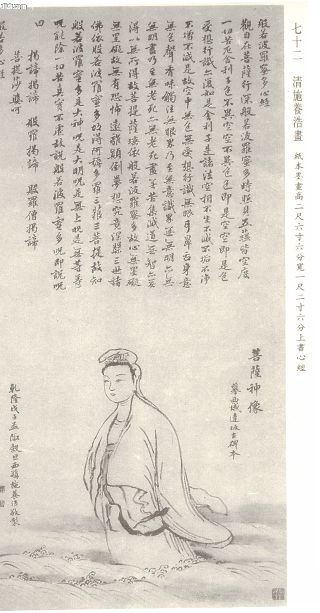 七十二 清施養浩畫 紙本墨畫高二尺六寸六分寬一尺二寸六分上書心經
般若波羅蜜多心經
觀自在菩薩行深般若波羅蜜多時照見五蘊皆空度
一切苦厄舍利子色不異空空不異色色即是空空即是色
受想行識亦復如是舍利子是諸法空相不生不滅不垢不淨
不增不減是故空中無色無受想行識無眼耳鼻舌身意
無色聲香味觸法無眼界乃至無意識界無無明亦無
無明盡乃至無老死亦無老死盡無苦集滅道無智亦無
得以無所得故菩提薩埵依般若波羅蜜多故心無罣礙
無罣礙故無有恐怖遠離顛倒夢想究竟涅槃三世諸
佛依般若波羅蜜多故得阿耨多羅三藐三菩提故知
般若波羅蜜多是大神呪是大明呪是無上呪是無等等
呪能除一切苦真實不虛故說般若波羅蜜多呪即說呪
曰
揭諦揭諦 般羅揭諦 般羅僧揭諦
菩提沙婆呵
菩薩神像
摹西域達
古碑本
乾隆戊子孟
穀旦西
施養浩敬製